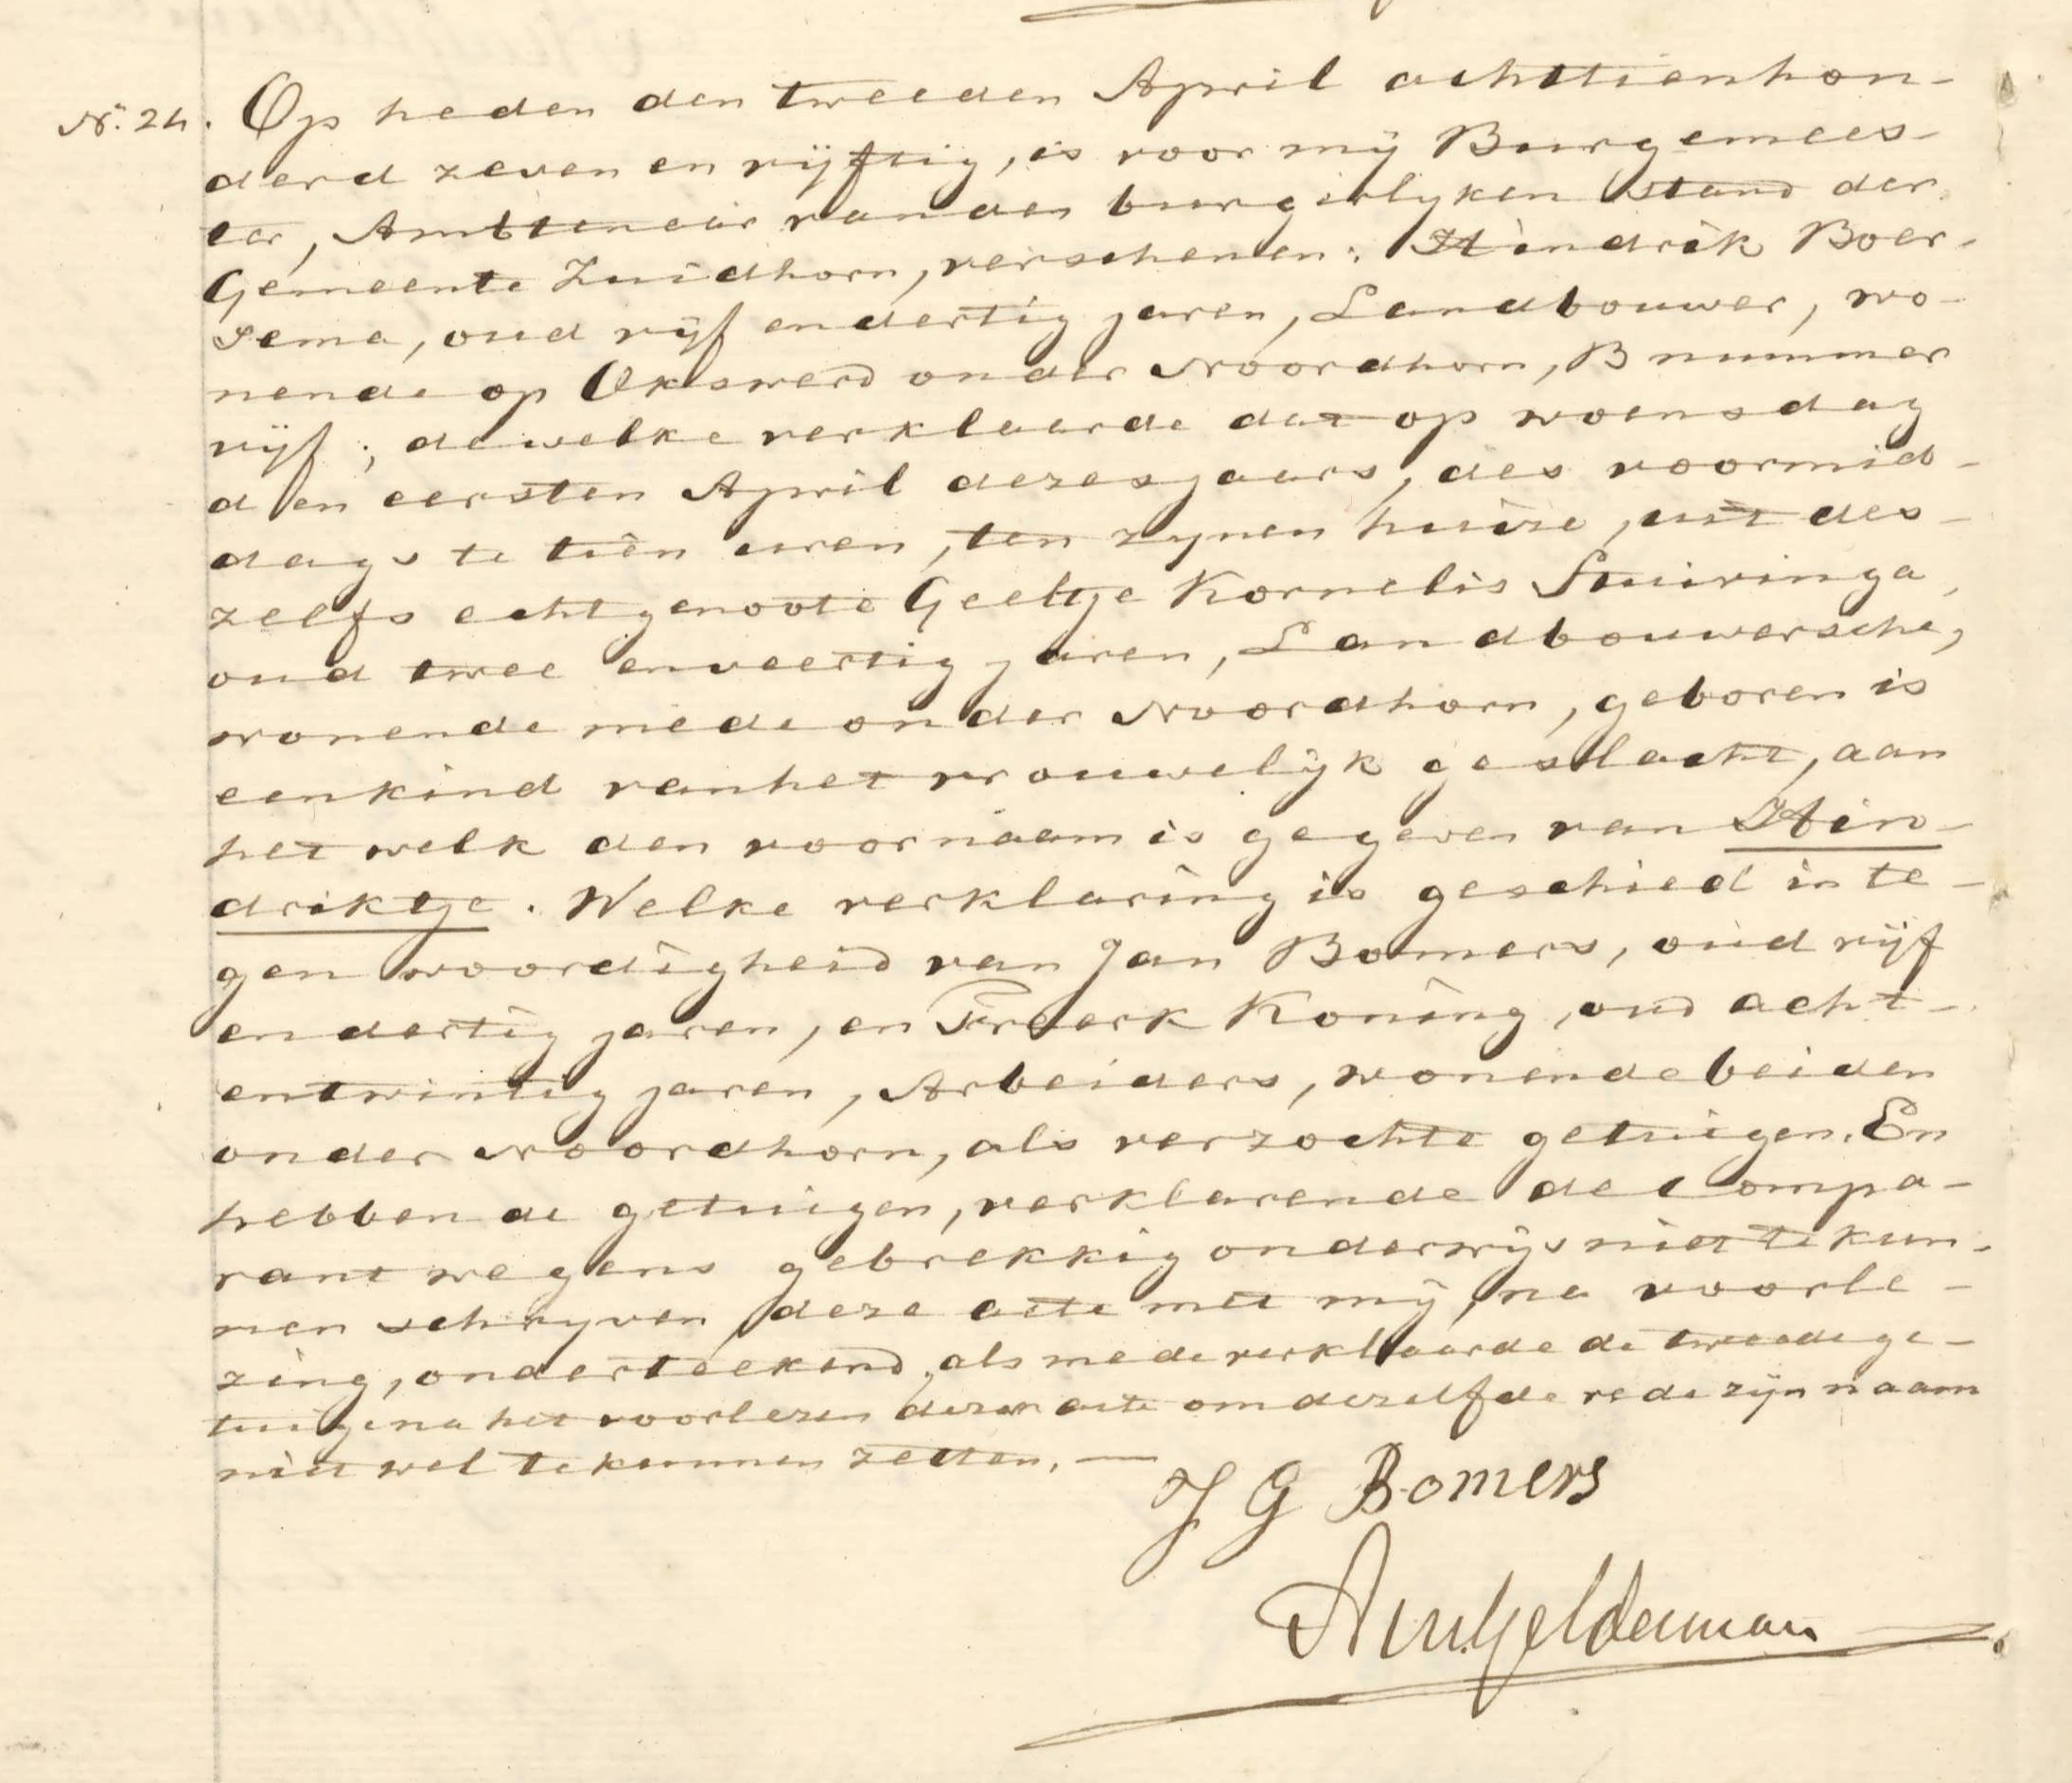 N°. 24. Op heden den tweeden April achttienhon-
derd zeven en vijftig, is voor mij Burgemees-
ter, Ambtenaar van den burgerlyken stand der
Gemeente Zuidhorn, verschenen: Hindrik Boer-
sema, oud vijf en dertig jaren, Landbouwer, wo-
nende op Okswerd onder Noordhorn, B nummer
vijf; dewelke verklaarde dat op woensdag
den eersten April dezes jaars, des voormid-
dags te tien uren, ten zynen huize, uit des-
zelfs echtgenoote Geeltje Kornelis Suiringa,
oud twee en veertig jaren, Landbouwersche,
wonende mede onder Noordhorn, geboren is
een kind van het vrouwelijk geslacht, aan
het welk den voornaam is gegeven van Hin-
driktje. Welke verklaring is geschied in te-
genwoordigheid van Jan Bomers, oud vijf
en dertig jaren, en Freerk Koning, oud acht-
entwintig jaren, Arbeiders, wonende beiden
onder Noordhorn, als verzochte getuigen. En
hebben de getuigen, verklarende de Compa-
rant wegens gebrekkig onderwijs niet te kun-
nen schryven, deze acte met mij, na voorle-
zing, onderteekend, als mede verklaarde de tweede ge-
tuige na het voorlezen dezer acte om dezelfde rede zijn naam
niet wel te kunnen zetten. —
J G Bomers
Gelderman